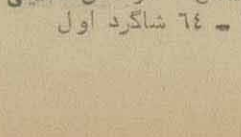 ـ ٦٤ شاگرد اول